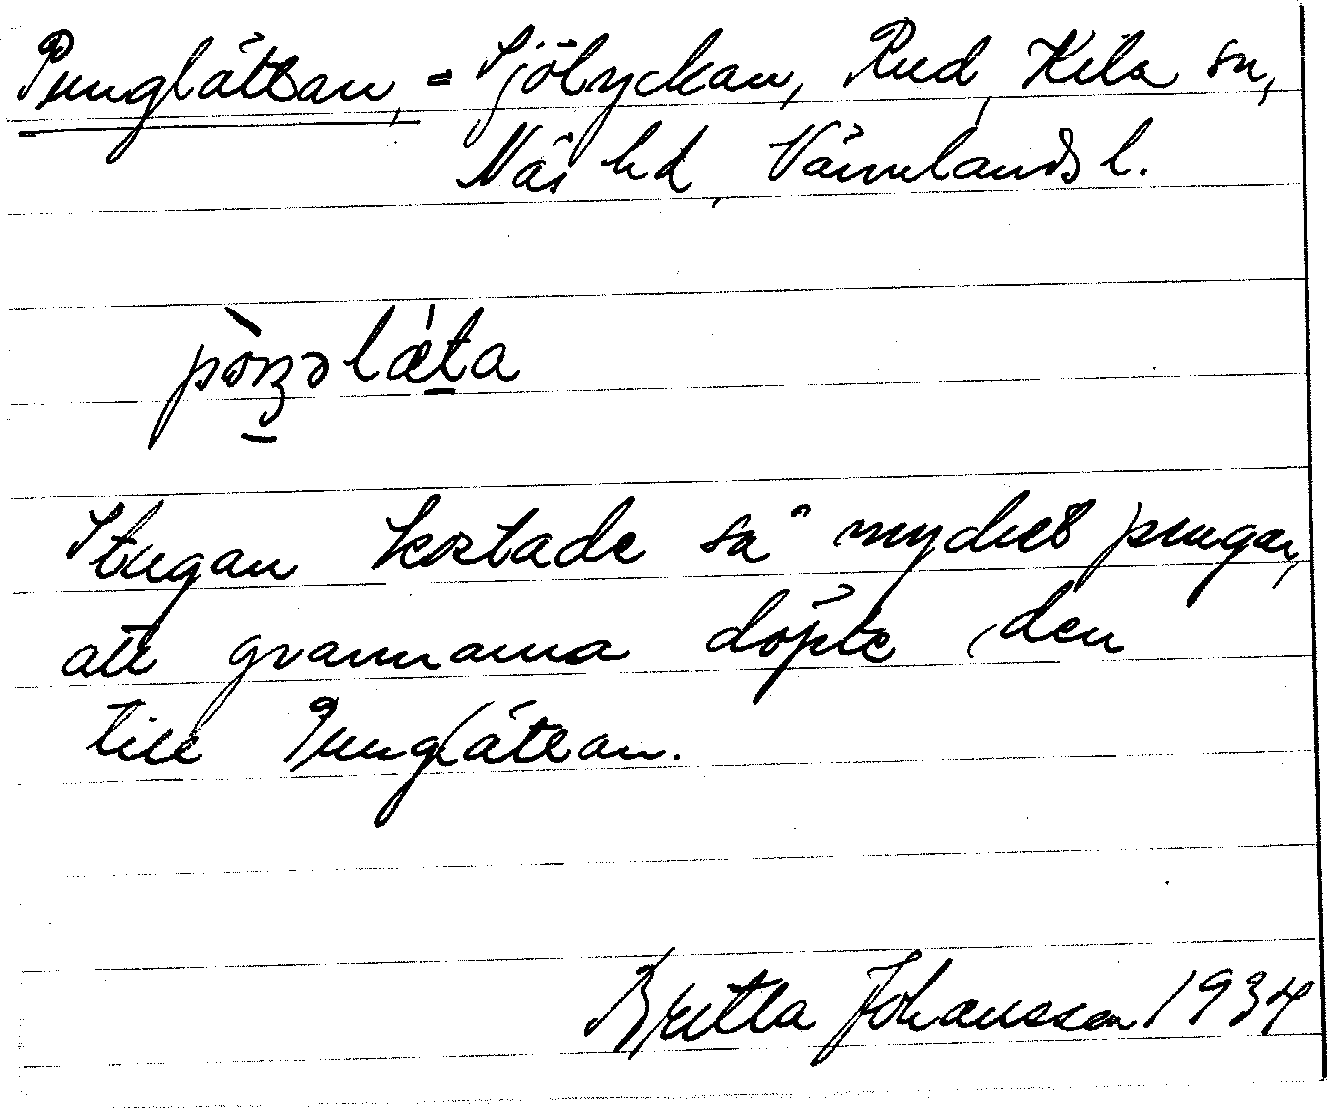 Punglättan, = Sjölyckan, Rud, Kila sn,
Näs hd, Värmlands l.
pòŋəlæ̀ta
Stugan kostade så mycket pengar,
att grannarna döpte den
till Punglättan.
Britta Johansson 1934